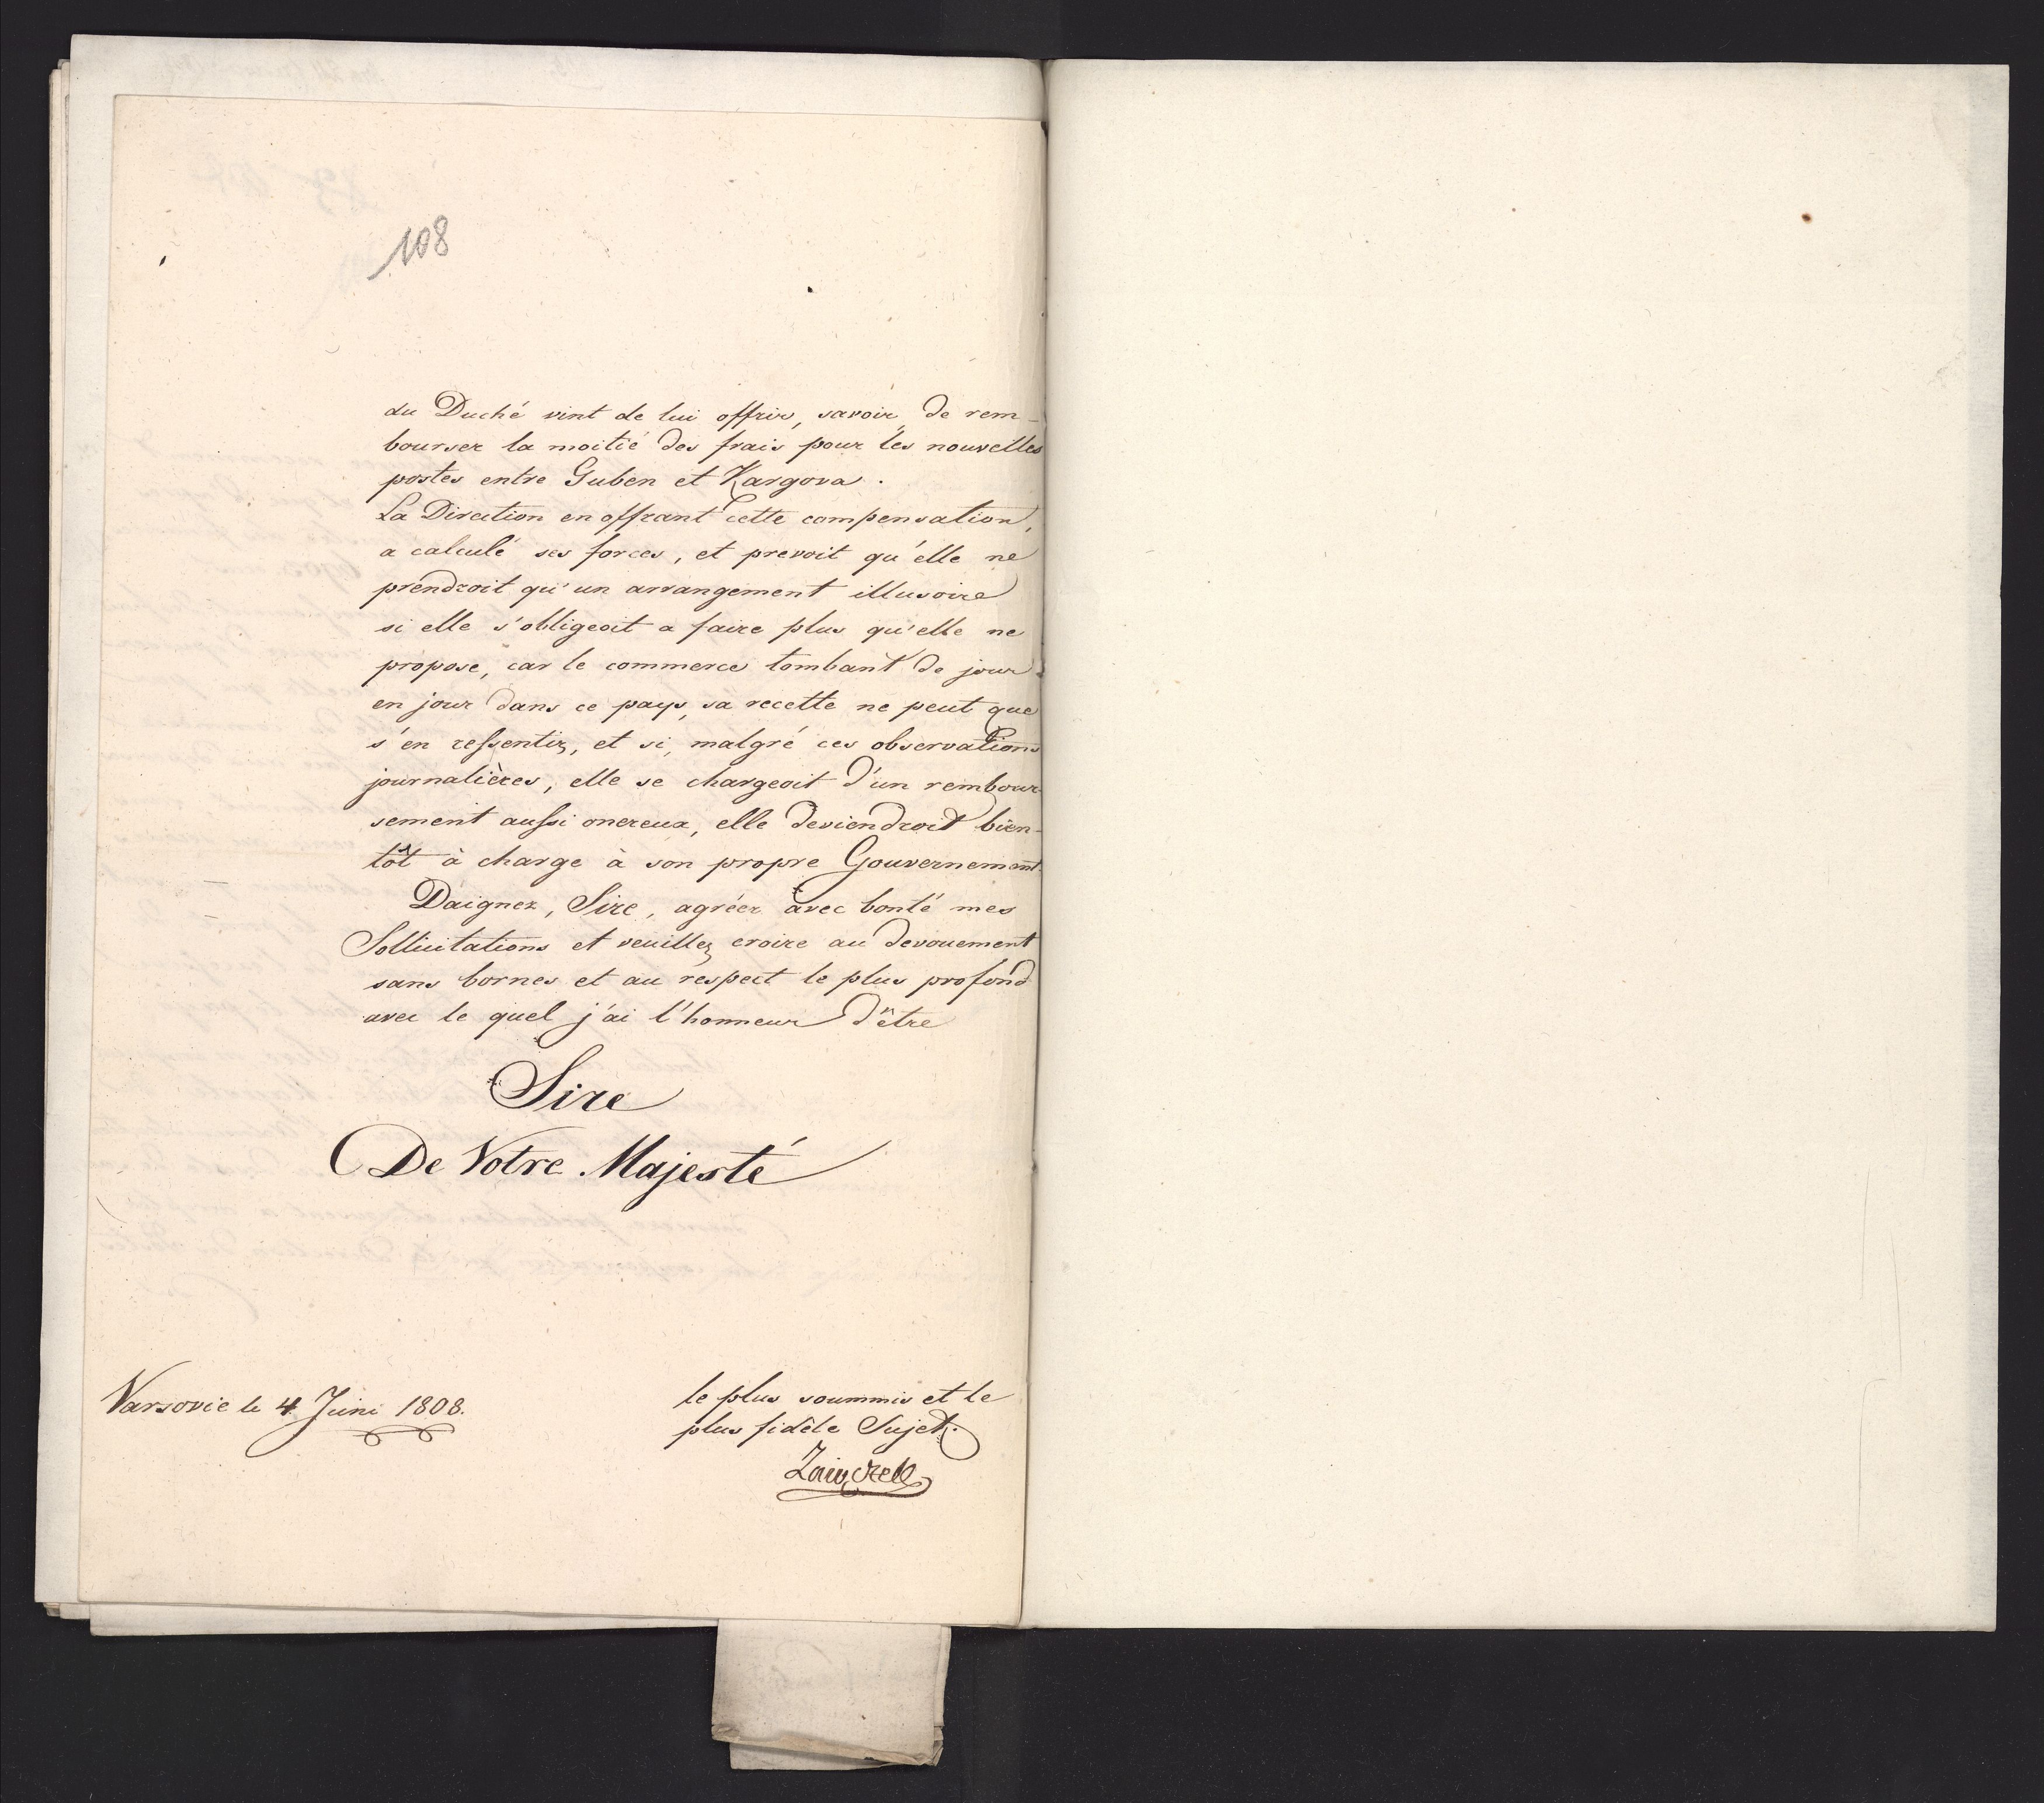 108
du Duché vint de lui offrir, savoir, de rem-
bourser la moitié des frais pour les nouvelles
postes entre Guben et Kargova.
La Direction en offrant cette compensation,
a calculé ses forces, et prevoit qu'elle ne
prendroit qu'un arrangement illusoire
si elle s'obligeoit a faire plus qu'elle ne
propose, car le commerce tombant de jour
en jour dans ce pays, sa recette ne peut que
s'en ressentir, et si, malgré ces observations
journalières, elle se chargeoit d'un rembour-
sement aussi onereux, elle deviendroit bien-
tôt à charge à son propre Gouvernement.
Daignez, Sire, agréer avec bonté mes
Sollicitations et veuillez croire au devouement
sans bornes et au respect le plus profond
avec le quel j'ai l'honneur d'être
Sire
De Votre Majesté
le plus soummis et le
plus fidèle Sujet.
Varsovie le 4 Juni 1808.